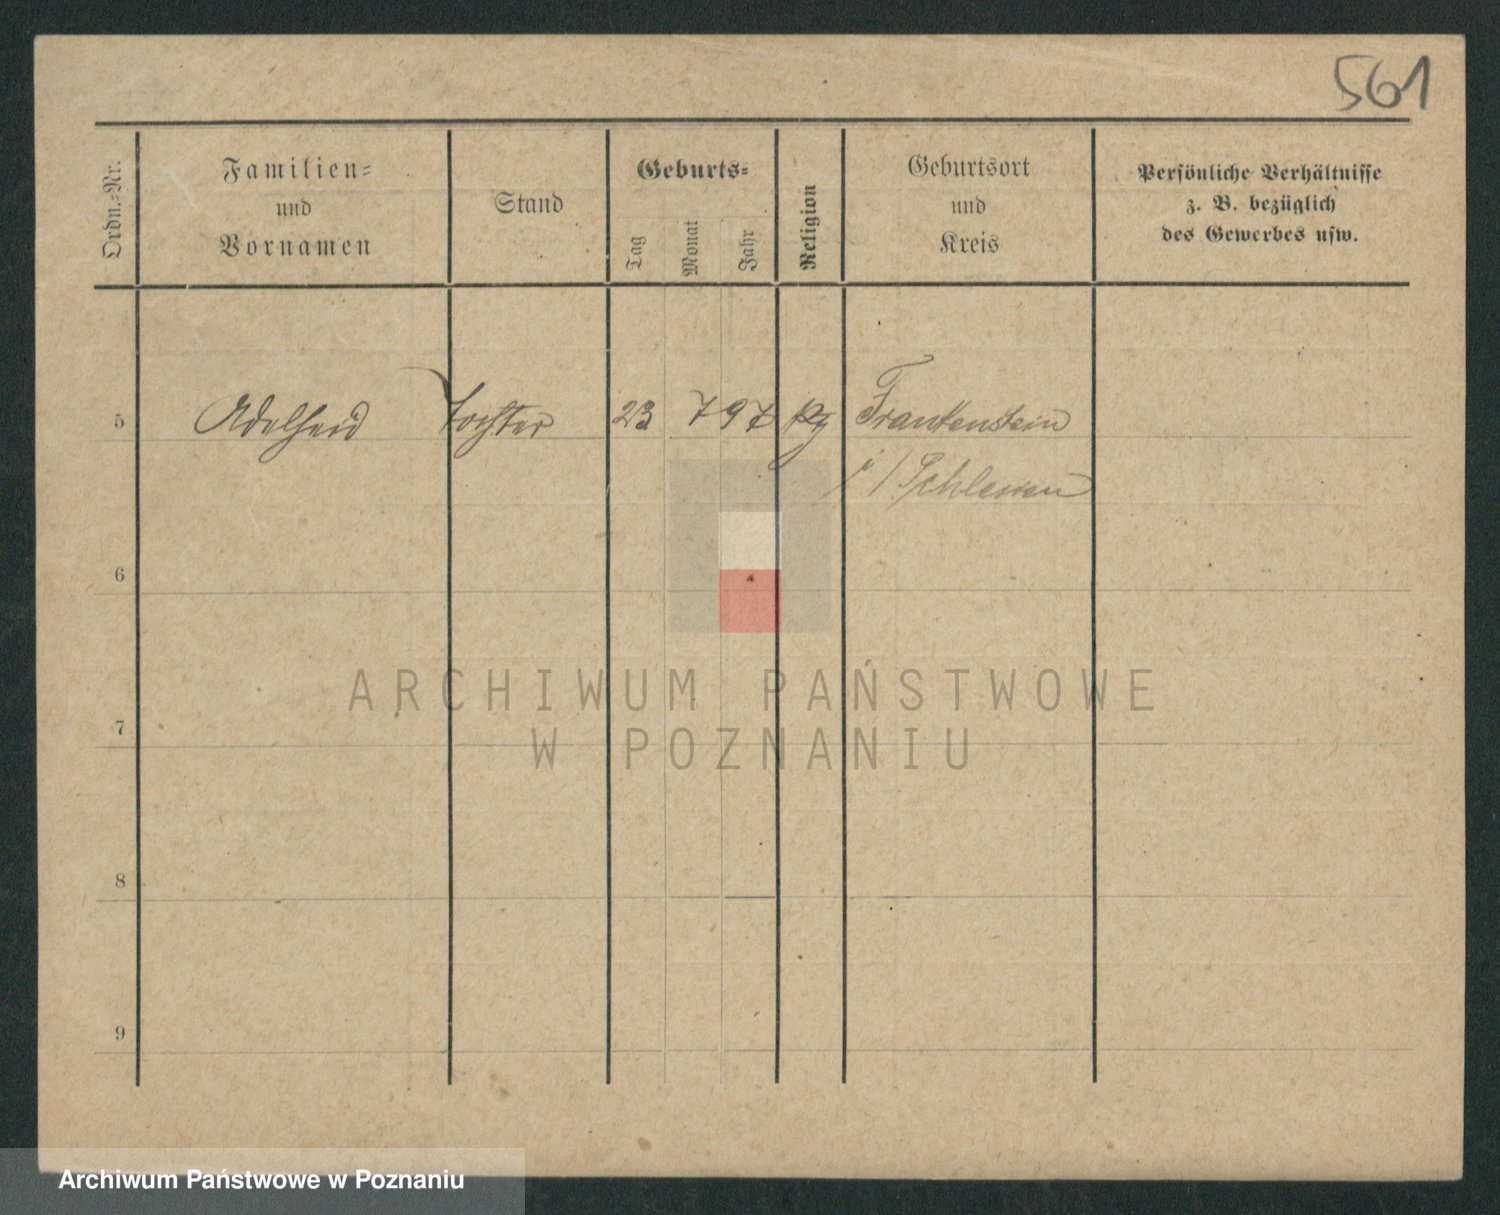 561
Ordn.-Nr.
Familien-
und
Vornamen
Stand
Geburts-
Tag
Monat
Jahr
Religion
Geburtsort
und
Kreis
Persönliche Verhältnisse
z. B. bezüglich
des Gewerbes usw.
5 Adelheid Tochter 23 7 97 Frankenstein
i/Schlesien
6
7
8
9
ARCHIWUM PAŃSTWOWE
W POZNANIU
Archiwum Państwowe w Poznaniu